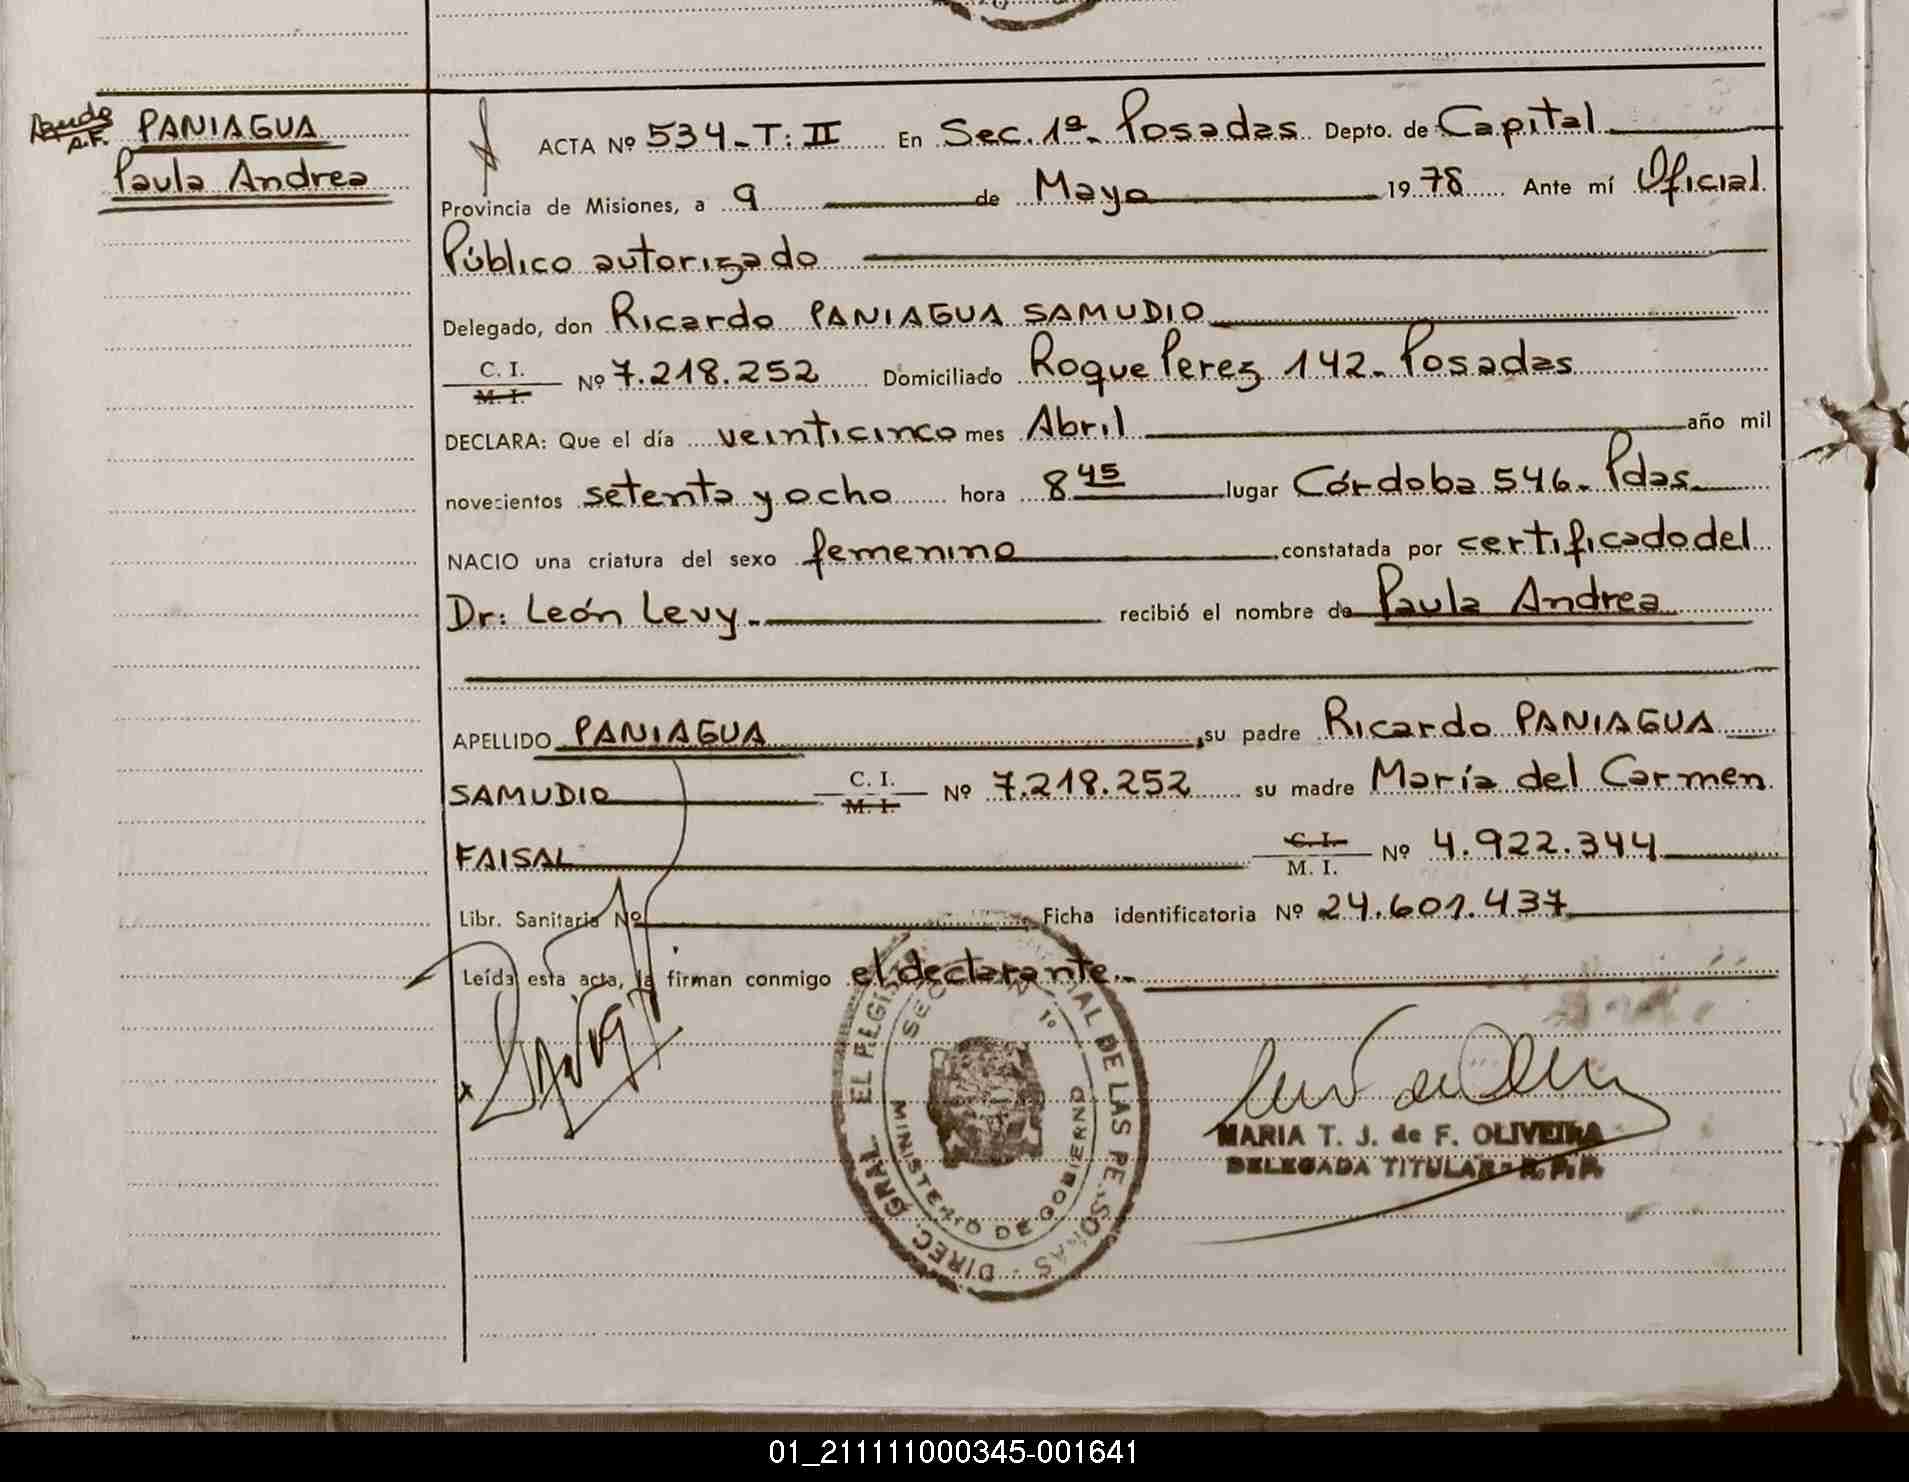 PANIAGUA
Paula Andrea
A.F.
ACTA Nº 534-T: II En Sec. 1ª- Posadas Depto. de Capital
Provincia de Misiones, a 9 de Mayo 1978 Ante mí Oficial
Público autorizado
Delegado, don Ricardo PANIAGUA SAMUDIO
C. I.
M. I. Nº 7.218.252 Domiciliado Roque Perez 142- Posadas
DECLARA: Que el día veinticinco mes Abril año mil
novecientos setenta y ocho hora 8 45 lugar Córdoba 546- Pdas
NACIO una criatura del sexo femenino constatada por certificado del
Dr: León Levy.- recibió el nombre de Paula Andrea
APELLIDO PANIAGUA, su padre Ricardo PANIAGUA
SAMUDIO C. I. M. I. Nº 7.218.252 su madre María del Carmen
FAISAL C. I. M. I. Nº 4.922.344
Libr. Sanitaria Nº Ficha identificatoria Nº 24.601.437
Leída esta acta, la firman conmigo el declarante.-
MINISTERIO DE GOBIERNO
MARIA T. J. de F. OLIVEIRA
DELEGADA TITULAR
01_211111000345-001641